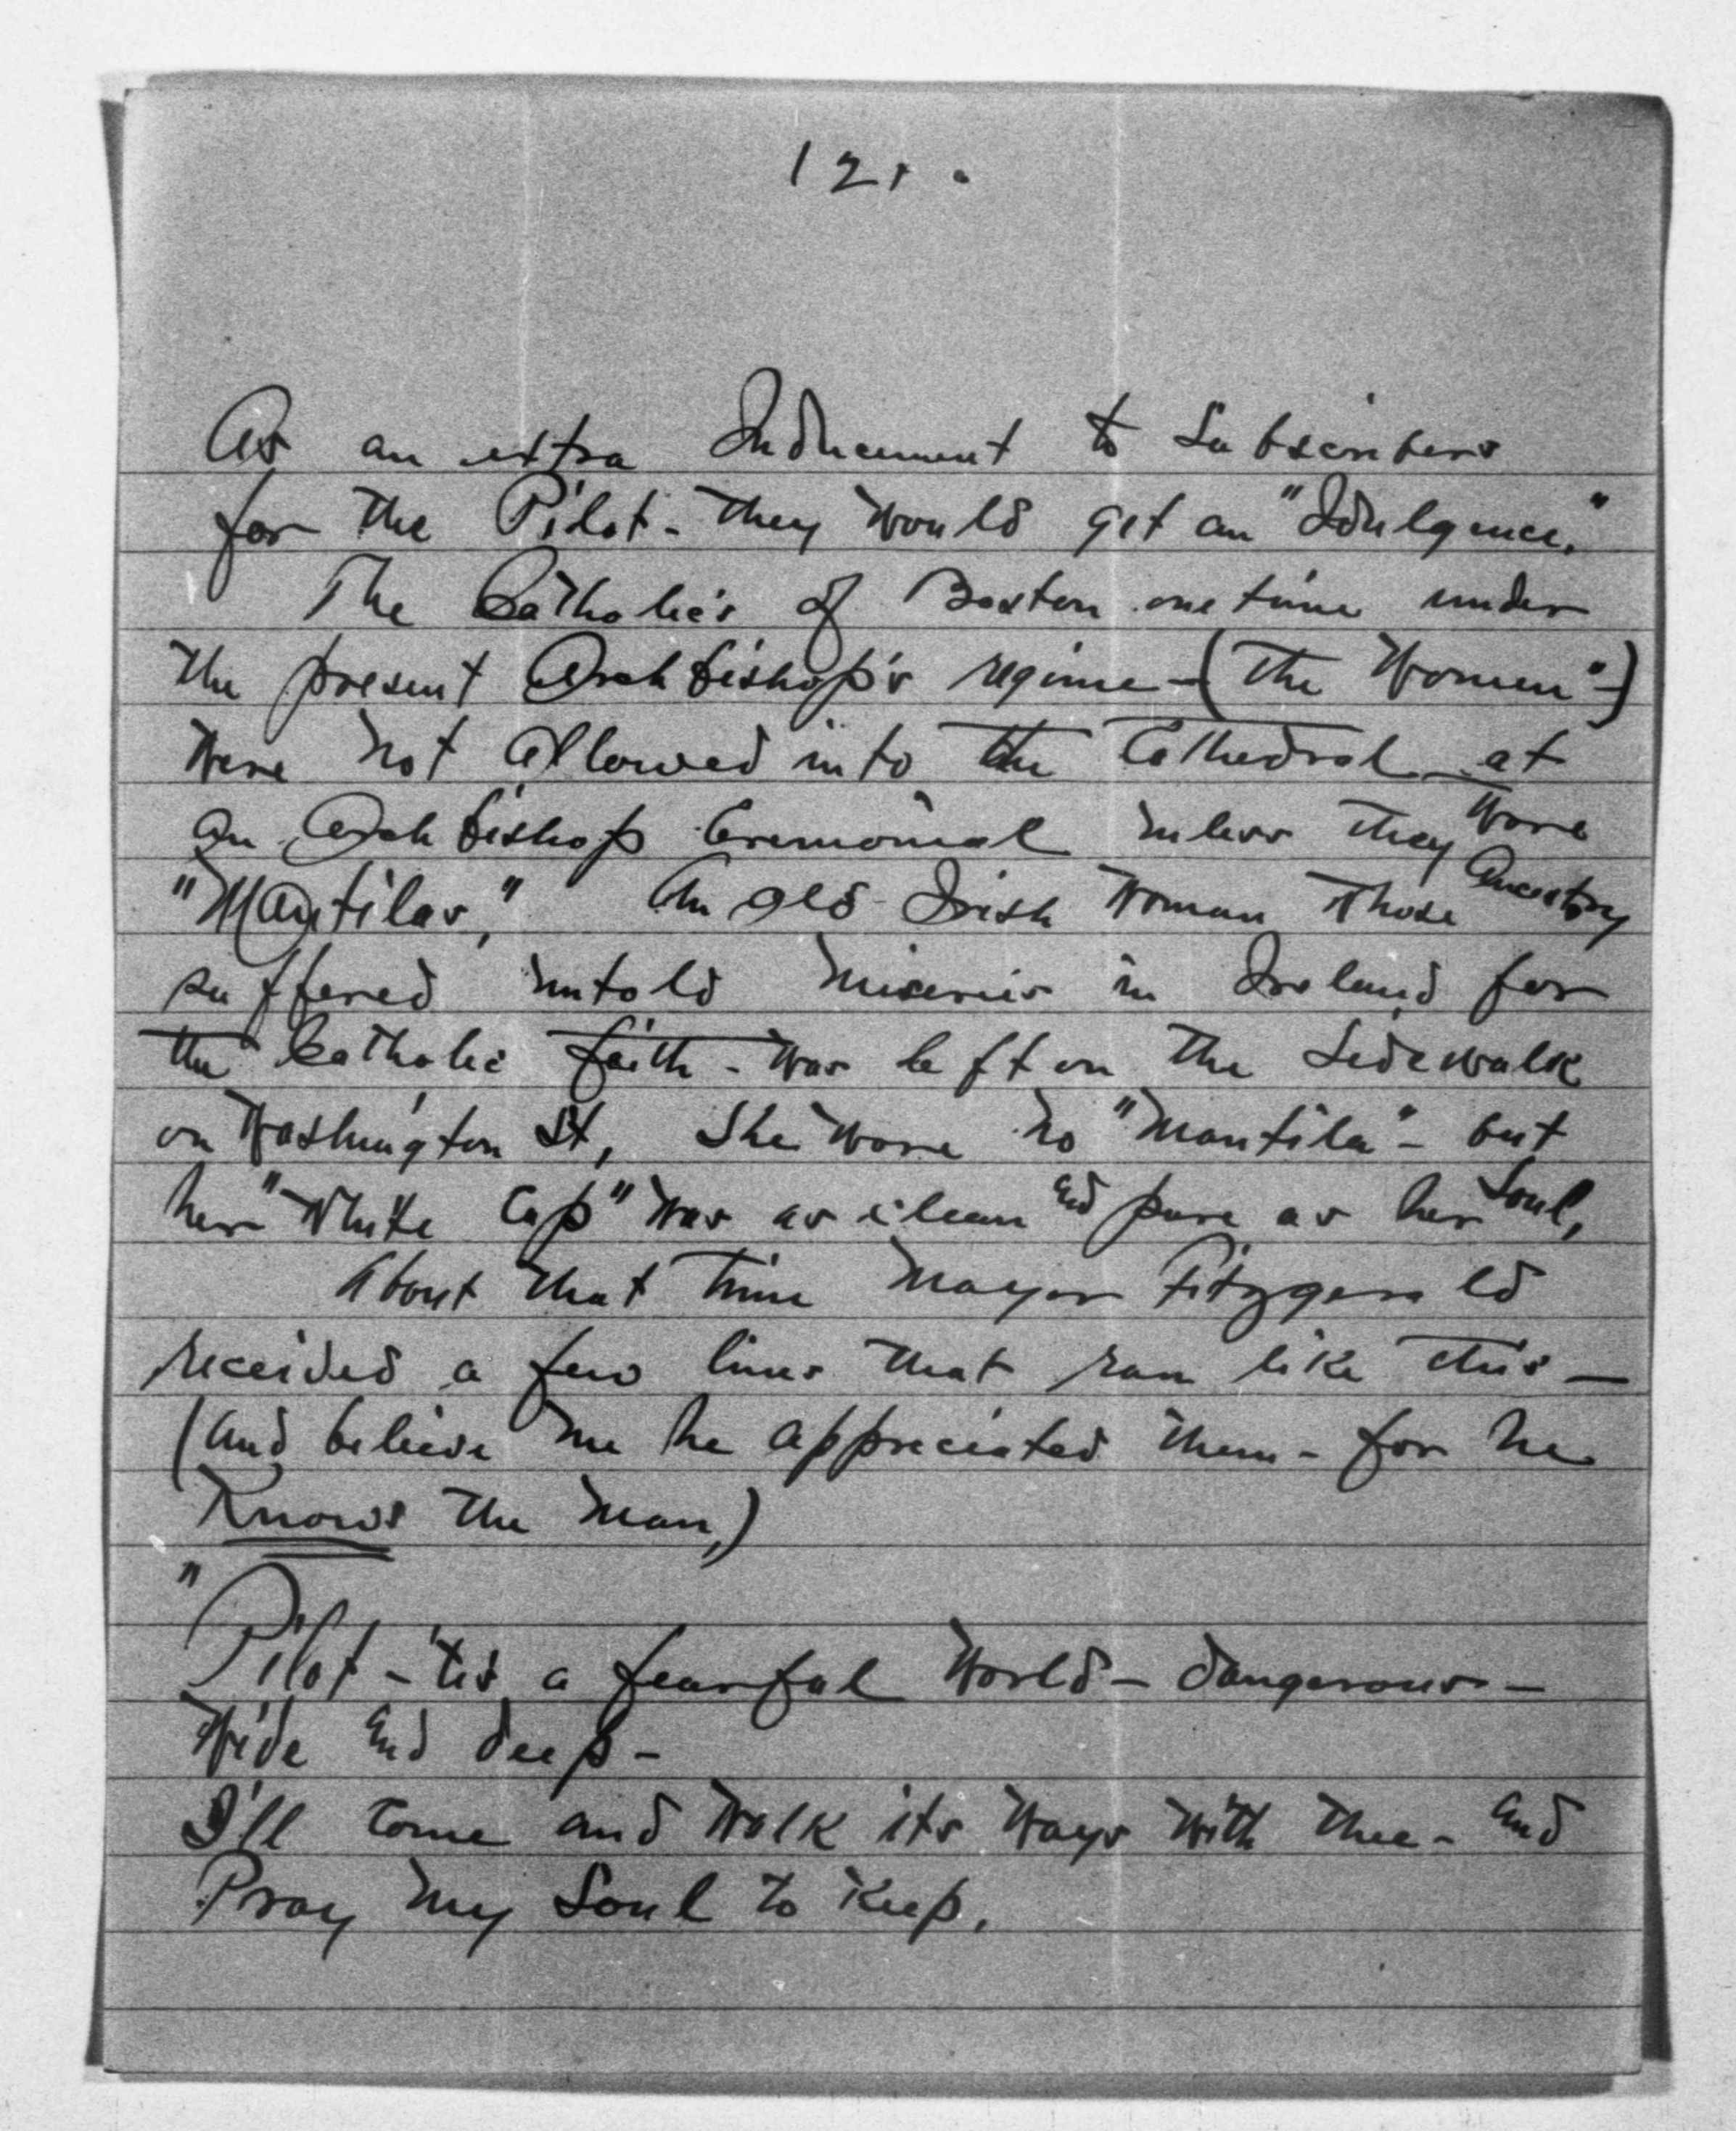 121.
As an extra Inducement to Subscribers
for the Pilot - they would get an "Idulgence."
The Catholic's of Boston one time under
the present Archbishop's regime - (The Women" -)
Were not allowed into the Cathedral - at
an Archbishop Ceremonial unless they Wore
"Mantilas," An old Irish Woman Whose Ancestry
suffered untold miseries in Ireland for
the Catholic faith - was left on the Sidewalk
on Washington St, She wore no "Mantila" - but
her "White Cap" was as clean and pure as her Soul,
About that time Mayor Fitzgerald
received a few lines that ran like this —
(and believe me he appreciated them - for he
Knows the Man,)
"Pilot - 'tis a fearful World - dangerous -
Wide and deep -
I'll come and walk its ways with thee - and
Pray my Soul to Keep.